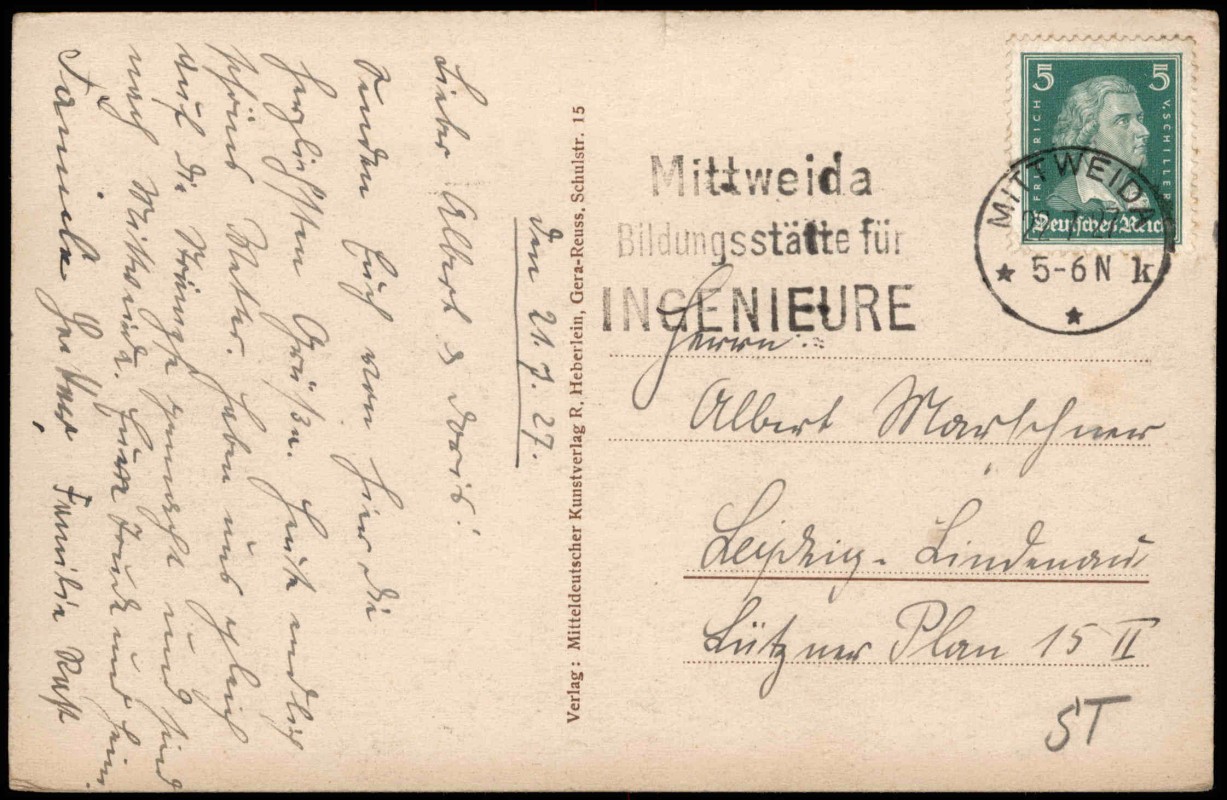 den 21.7.27.
Lieber Albert & Doris!
Senden Euch von hier die
herzlichsten Grüße. Heute endlich
schönes Wetter. Haben uns gleich
auf die Strümpfe gemacht und sind
nach Mittweida. Eure Freunde und
Familie
Familie Rast
Verlag: Mitteldeutscher Kunstverlag R. Heberlein, Gera-Reuss, Schulstr. 15
Mittweida
Bildungsstätte für
INGENIEURE
5 5
FRIEDRICH V. SCHILLER
Deutsches Reich
MITTWEIDA
7 27
5-6 N k
Herrn
Albert Marschner
Leipzig-Lindenau
Lützner Plan 15 II
ST